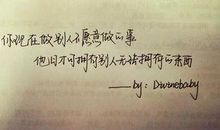 你现在做别人不愿意做的事
他日才可拥有别人无法拥有的东西
——by：Divinebaby